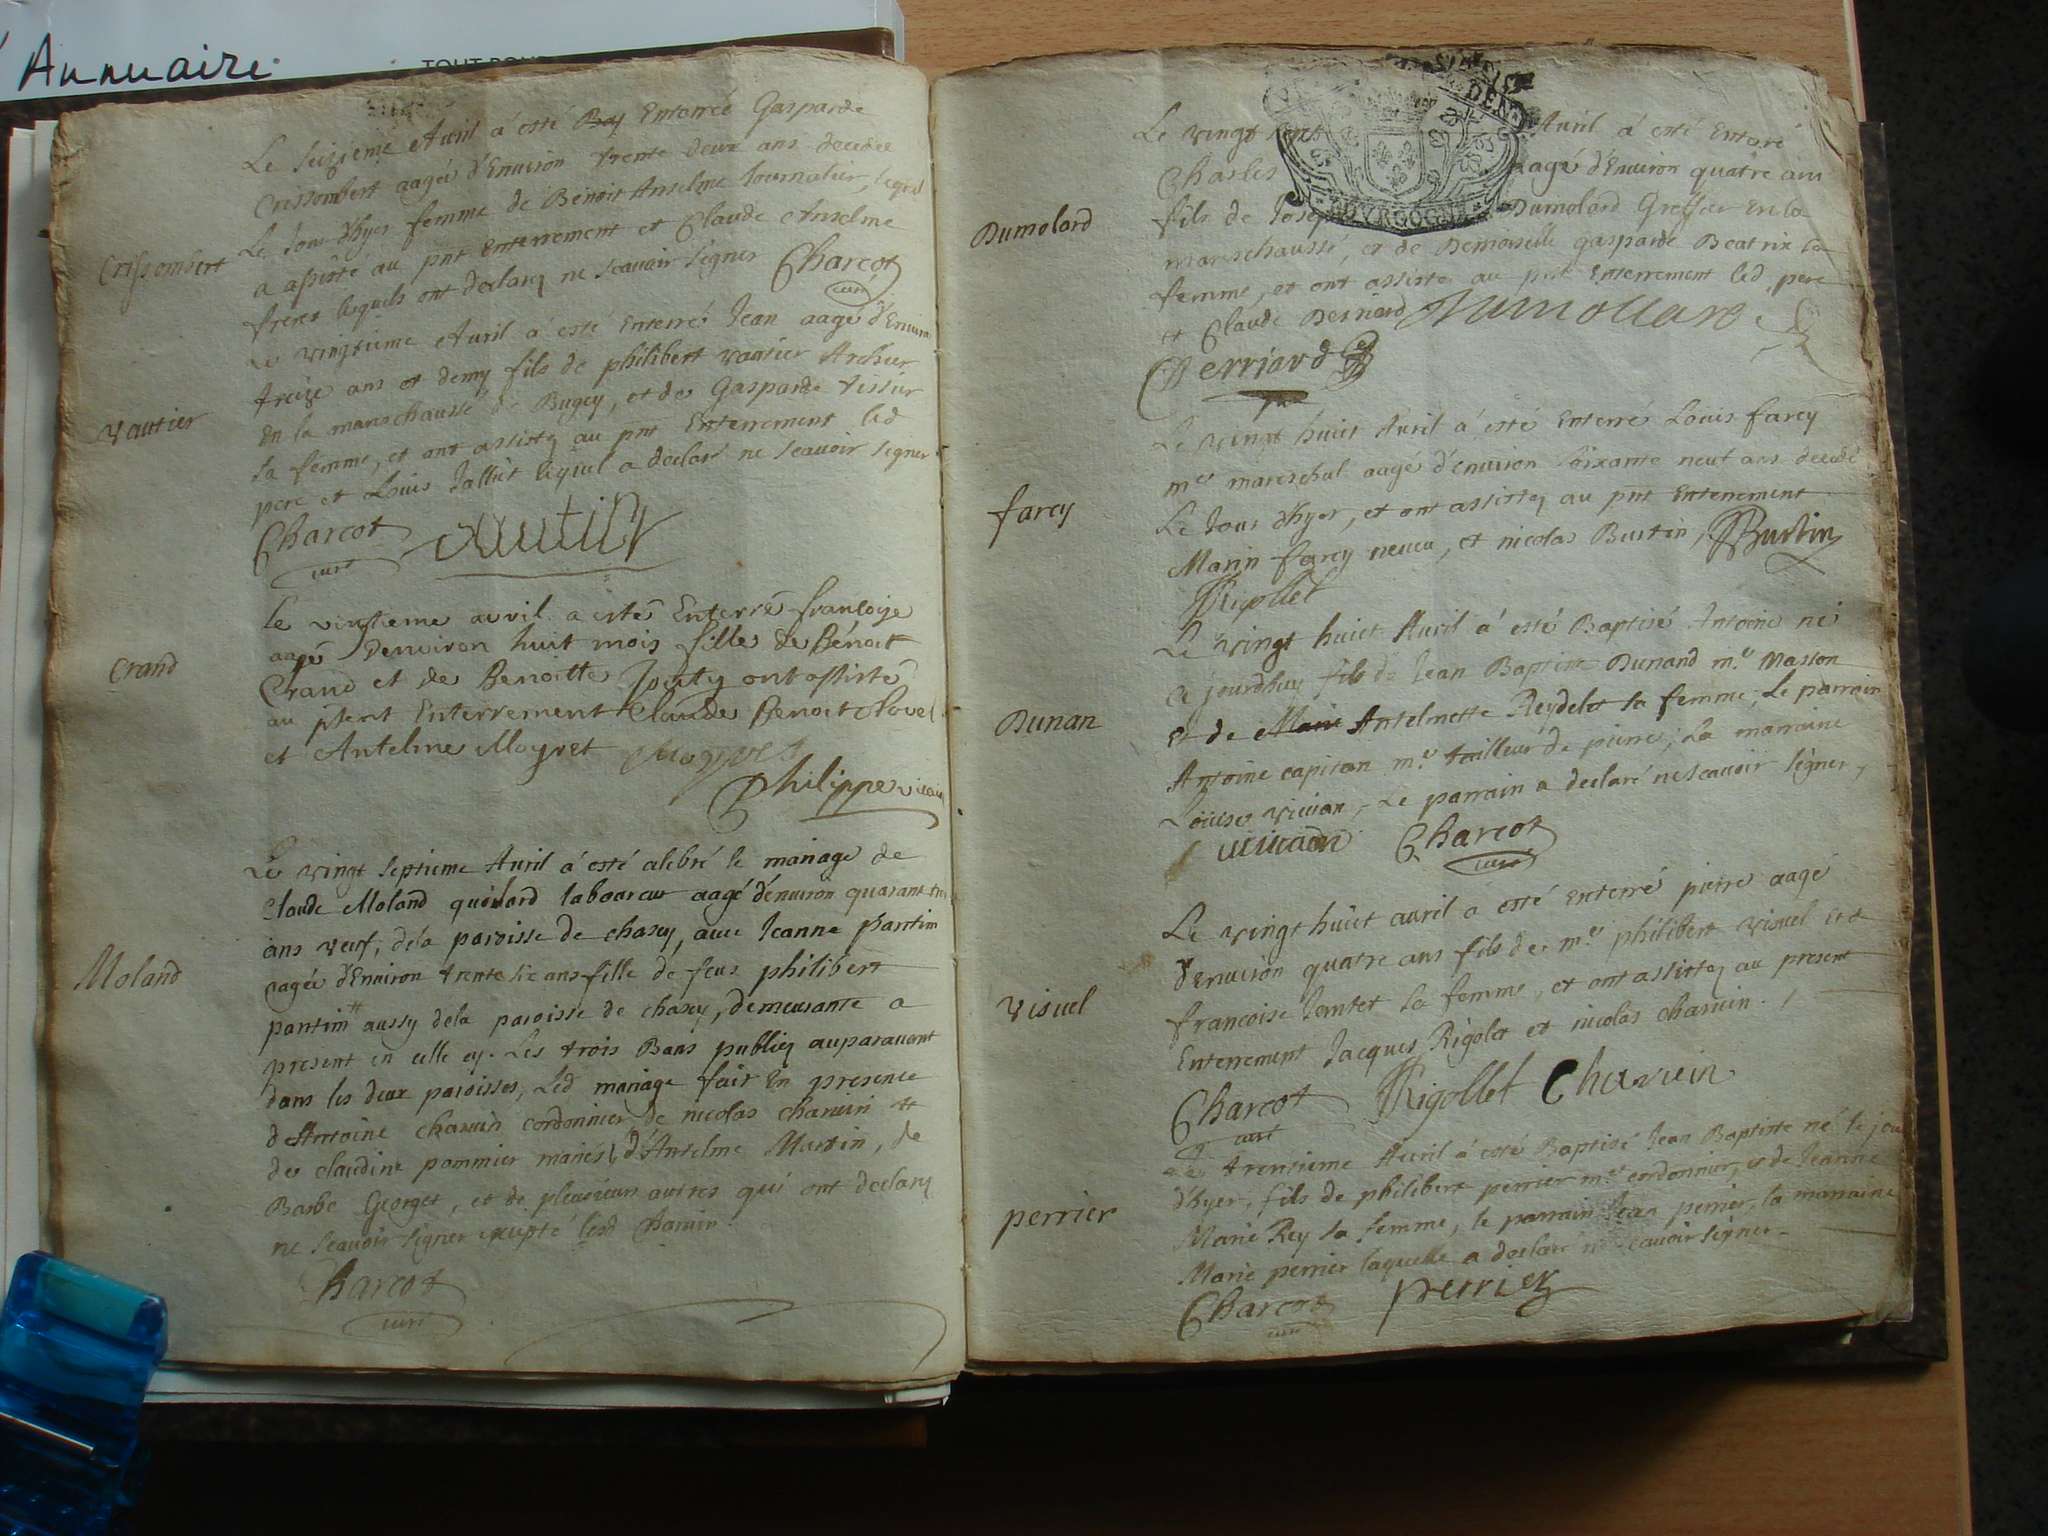 Annuaire
Le seizieme Avril à esté Entorrée Gasparde
Crissombert aagée d'Environ trente deux ans decedee
Le Jour d'hyer femme de Benoit Anselme Journalier, lequel
a assisté au pnt Enterrement et Claude Anselme
freres lequels ont declarez ne scavoir signer Charcot
curé
Crissombert
Le vingtieme Avril a esté Enterré Jean aagé d'Environ
treize ans et demy fils de philibert vautier Archer
En la mareschaussé de Bugey, et de Gasparde tissier
sa femme, et ont assistez au pnt Enterrement led
pere et Louis Jallut lequel a declaré ne scavoir signer
Charcot
curé
Vautier
Le vintieme avril a esté Enterré françoise
aagé Denviron huit mois fille de Benoit
Crand et de Benoitte ont assisté
au pnt Enterrement Claude Benoit Clovel
et Antelme Moyret
philippe vicaire
Crand
Le vingt septieme Avril à esté celebré le mariage de
Claude Moland laboureur aagé d'environ quarante
ans veuf, de la paroisse de chasey, avec Jeanne pantin
aagée d'Environ trente six ans fille de feus philibert
pantin aussy de la paroisse de chasey, demeurante a
present en celle cy. Les trois Bans publiez auparavant
dans les deux paroisses, Led mariage fait En presence
d'Antoine chanvin cordonnier, de nicolas chanvin et
de claudine pommier mariés, d'Antelme Martin, de
Barbe Georget, et de plusieurs autres qui ont declarez
ne scavoir signer excepté lesd Chanvin.
Charcot
curé
Moland
Le vingt Avril à esté Enterré
Charles aagé d'Environ quatre ans
fils de Joseph Dumolard Greffier En la
mareschaussé, et de Demoiselle gasparde Beatrix sa
femme, et ont assistez au pnt Enterrement led. pere
et Claude Bernard Dumollard
BOVRGOGNE
Dumolard
Le vingt huict Avril à esté Enterré Louis farcy
me mareschal aagé d'environ soixante neuf ans decedé
Le Jour d'hyer, et ont assistez au pnt Enterrement
Marin farcy neveu, et nicolas Burtin Burtin
Rigollet
farcy
Le vingt huict Avril à esté Baptisé Antoine né
ce jourdhuy fils de Jean Baptiste Dunand me Masson
Et de Marie Antelmette Reydelet sa femme; Le parrain
Antoine capitan me tailleur de pierre; La marraine
Louise vivian, Le parrain a declaré ne scavoir signer,
Charcot
curé
Dunan
Le vingt huict avril à esté Enterré pierre aagé
d'Environ quatre ans fils de me philibert visuel et de
francoise Jantet sa femme, et ont assistez au present
Enterrement Jacques Rigolet et nicolas chanvin.
Charcot Rigollet Chanvin
curé
Visuel
Le trentieme Avril à esté Baptisé Jean Baptiste né le jour
d'hyer, fils de philibert perrier me cordonnier, et de Jeanne
Marie Rey sa femme, le parrain Jean perrier, la marraine
Marie perrier laquelle a declaré ne scavoir signer.
Charcot perrier
curé
perrier